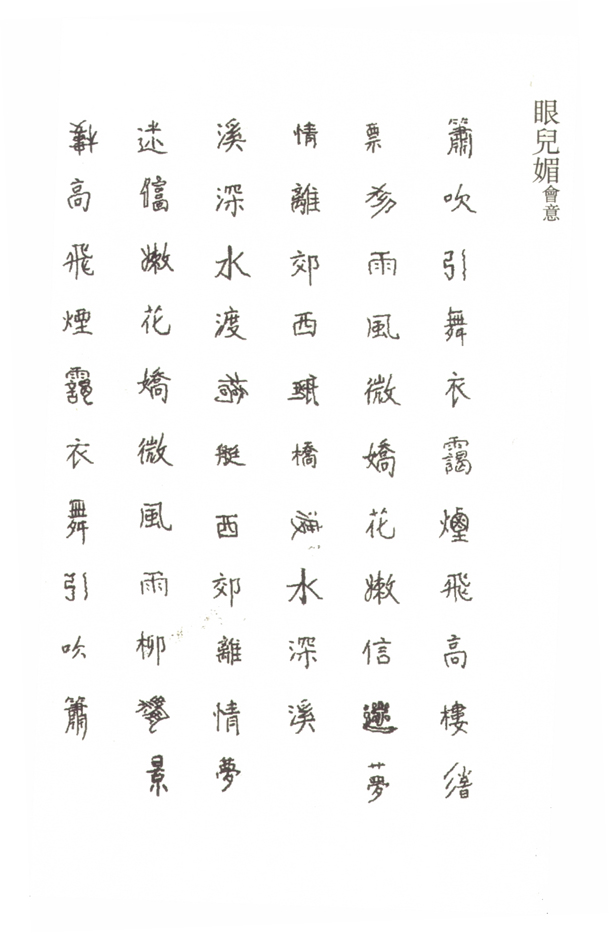 眼兒媚會意
簫吹引舞衣靄煙飛高樓
票雨風微嬌花嫩信夢
情離郊西橋水深溪
溪深水渡艇西郊離情夢
迷嫩花嬌微風雨柳景
高飛煙靄衣舞引吹簫